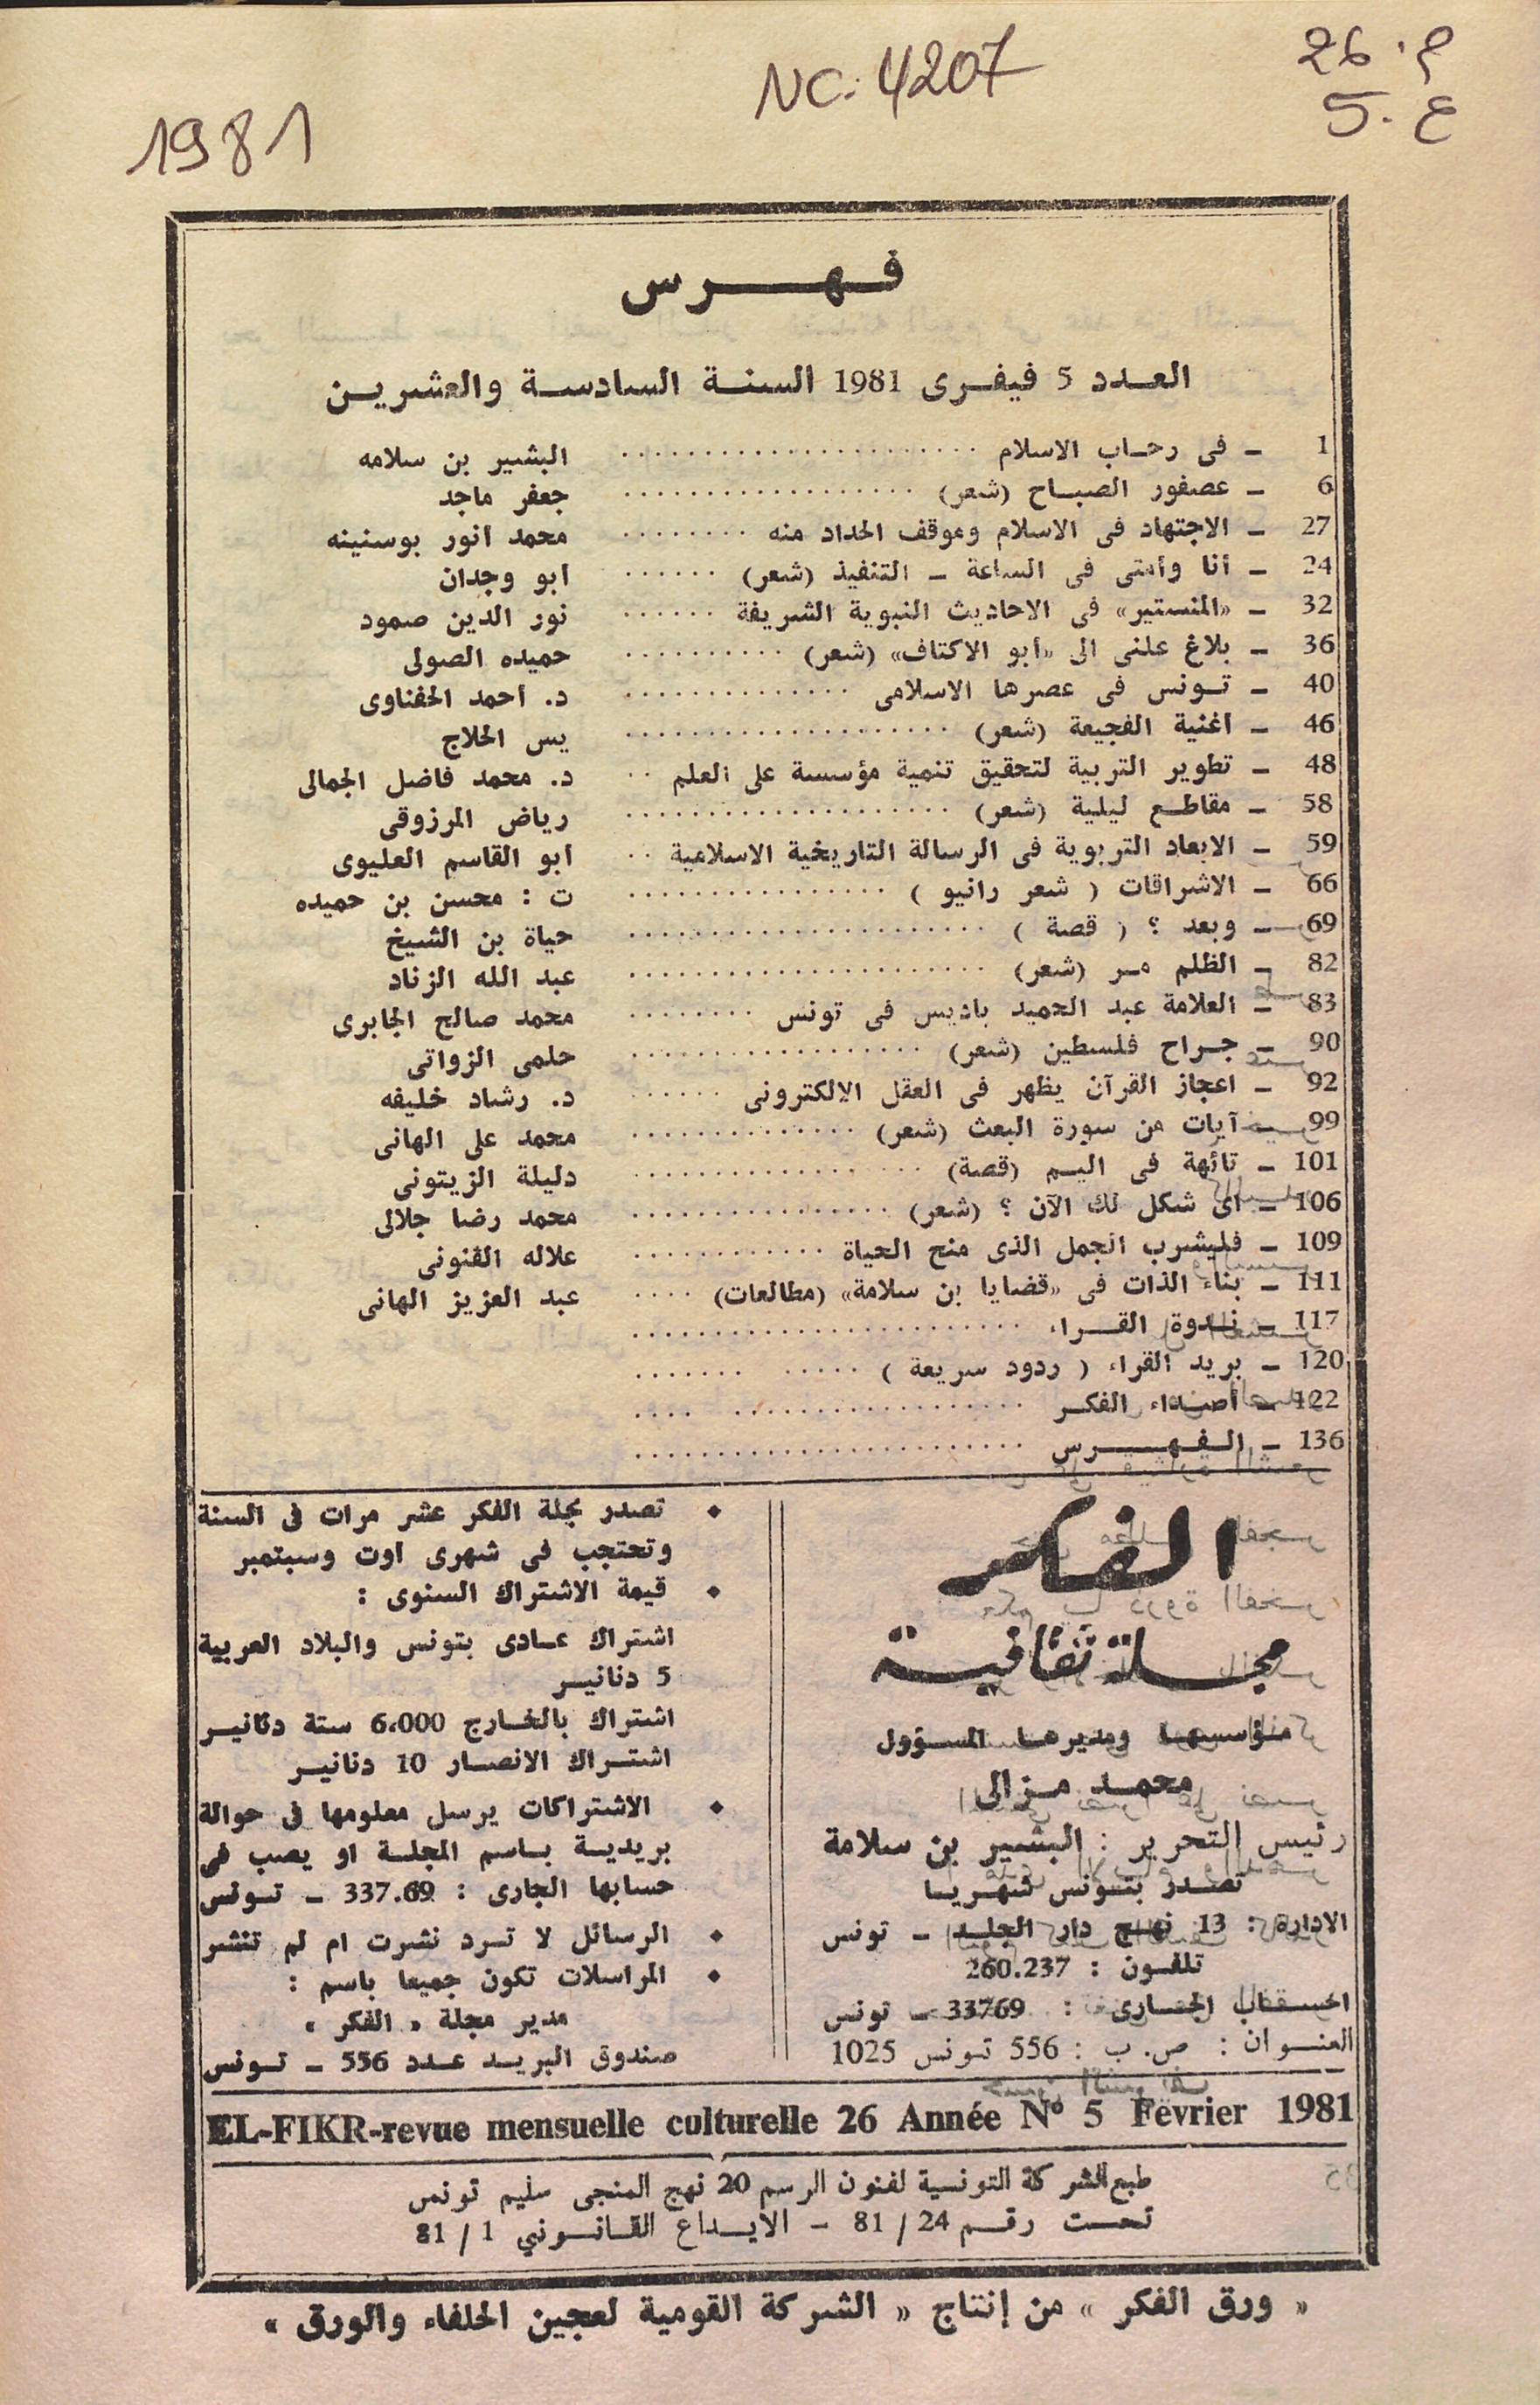 NC: 4207
م. 26
ع. 5
1981
فهرس
العدد 5 فيفرى 1981 السنة السادسة والعشرين
1 – فى رحاب الاسلام ........ البشير بن سلامه
6 – عصفور الصباح (شعر) ........ جعفر ماجد
27 – الاجتهاد فى الاسلام وموقف الحداد منه ........ محمد انور بوسنينه
24 – أنا وأمتى فى الساعة – التنفيذ (شعر) ...... أبو وجدان
32 – «المنستير» فى الاحاديث النبوية الشريفة ...... نور الدين صمود
36 – بلاغ علنى الى «أبو الاكتاف» (شعر) .......... حميده الصولى
40 – تونس فى عصرها الاسلامى .............. د. احمد الحفناوى
46 – اغنية الفجيعة (شعر) .................... يس الحلاج
48 – تطوير التربية لتحقيق تنمية مؤسسة على العلم .. د. محمد فاضل الجمالى
58 – مقاطع ليلية (شعر) .................... رياض المرزوقى
59 – الابعاد التربوية فى الرسالة التاريخية الاسلامية .. ابو القاسم العليوى
66 – الاشراقات ( شعر رانبو ) ................ ت : محسن بن حميده
69 – وبعد ؟ ( قصة ) ...................... حياة بن الشيخ
82 – الظلم مر (شعر) ...................... عبد الله الزناد
83 – العلامة عبد الحميد باديس فى تونس ........ محمد صالح الجابرى
90 – جراح فلسطين (شعر) .................. حلمى الزواتى
92 – اعجاز القرآن يظهر فى العقل الالكترونى ...... د. رشاد خليفه
99 – آيات من سورة البعث (شعر) .............. محمد على الهانى
101 – تائهة فى اليم (قصة) .................. دليلة الزيتونى
106 – اى شكل لك الآن ؟ (شعر) ................ محمد رضا جلالى
109 – فليشرب الجمل الذى منح الحياة ............ علاله القنونى
111 – بناء الذات فى «قضايا بن سلامة» (مطالعات) .... عبد العزيز الهانى
117 – ندوة القراء ........................
120 – بريد القراء ( ردود سريعة ) ............
122 – أصداء الفكر ......................
136 – الفهرس ........................
الفكر
مجلة ثقافية
مؤسسها ومديرها المسؤول
محمد مزالى
رئيس التحرير : البشير بن سلامة
تصدر بتونس شهريا
الادارة : 13 نهج دار الجلد – تونس
تلفون : 260.237
الحساب الجارى : 33769 – تونس
العنوان : ص. ب : 556 تونس 1025
♦ تصدر مجلة الفكر عشر مرات فى السنة
وتحتجب فى شهرى اوت وسبتمبر
♦ قيمة الاشتراك السنوى :
اشتراك عادى بتونس والبلاد العربية
5 دنانير
اشتراك بالخارج 6،000 ستة دنانير
اشتراك الانصار 10 دنانير
♦ الاشتراكات يرسل معلومها فى حوالة
بريدية باسم المجلة او يصب فى
حسابها الجارى : 337.69 – تونس
♦ الرسائل لا ترد نشرت ام لم تنشر
♦ المراسلات تكون جميعا باسم :
مدير مجلة « الفكر »
صندوق البريد عدد 556 – تونس
EL-FIKR-revue mensuelle culturelle 26 Année N° 5 Février 1981
طبع الشركة التونسية لفنون الرسم 20 نهج المنجى سليم تونس
تحت رقم 24 / 81 – الايداع القانوني 1 / 81
« ورق الفكر » من إنتاج « الشركة القومية لعجين الحلفاء والورق »